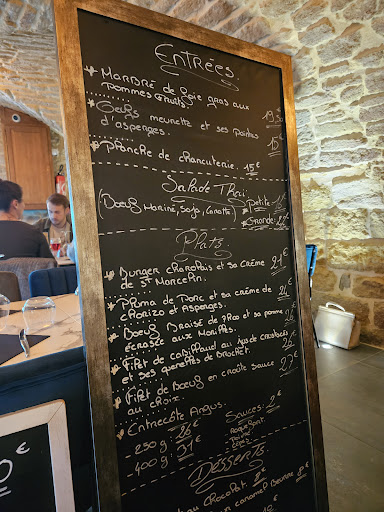 Entrées
* Marbré de foie gras aux
pommes fruits. 19,50
* Oeufs meurette et ses pointes
d'asperges. 15€
* Planche de charcuterie. 15€
Salade Thaï
(Boeuf Mariné, Soja, Carotte) * Petite
* Grande
Plats
* Burger charolais et sa crème
de St Marcelin. 21€
* Pluma de Porc et sa crème de
chorizo et Asperges.
* Boeuf Braisé de 7h00 et sa pomme
écrasée aux Morilles.
* Filet de cabillaud au Jus de crustacés
et ses quenelles de Brochet. 26€
* Filet de Boeuf en croûte sauce
au choix. 27€
* Entrecôte Angus. Sauces: 2€
- 250g: 26€
- 400g: 31€
Desserts
au chocolat
caramel Beurre